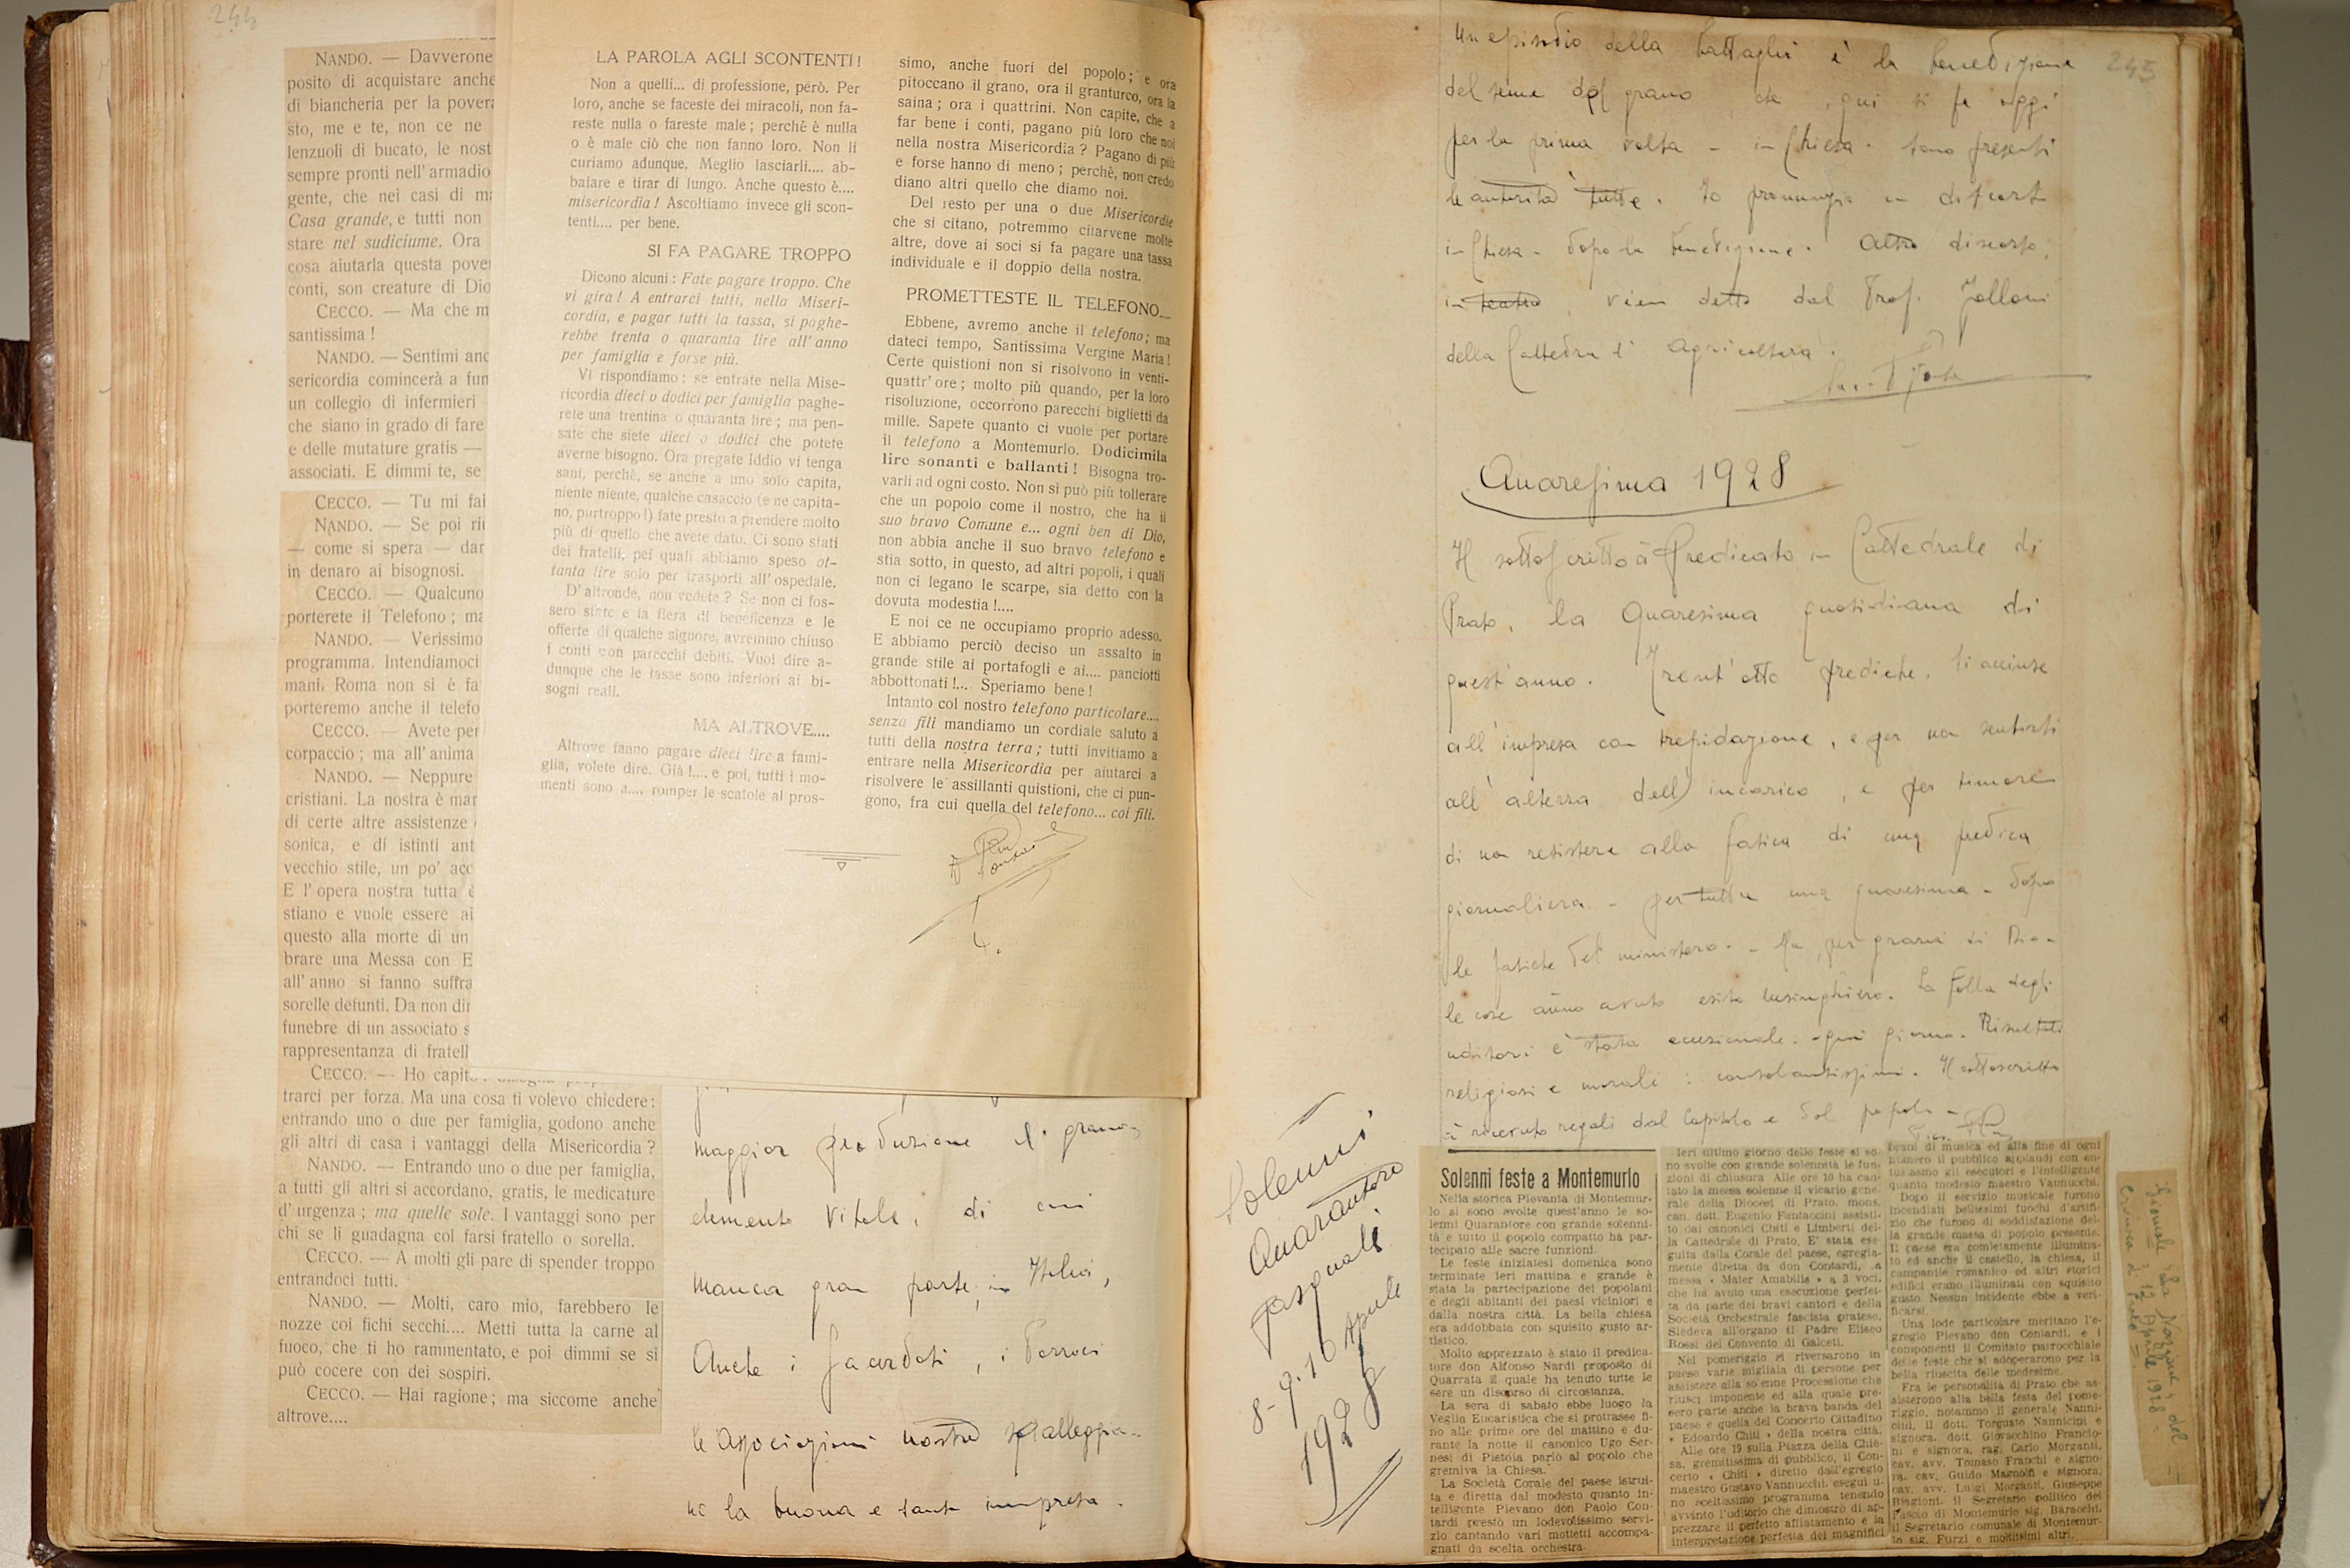 244
NANDO. — Davverone
posito di acquistare anche
di biancheria per la pover
sto, me e te, non ce ne
lenzuoli di bucato, le nost
sempre pronti nell' armadio
gente, che nei casi di m
Casa grande, e tutti non
stare nel sudiciume. Ora
cosa aiutarla questa pove
conti, son creature di Dio
CECCO. — Ma che m
santissima !
NANDO. — Sentimi anc
sericordia comincerà a fun
un collegio di infermieri
che siano in grado di fare
e delle mutature gratis —
associati. E dimmi te, se
CECCO. — Tu mi fai
NANDO. — Se poi ri
— come si spera — dar
in denaro ai bisognosi.
CECCO. — Qualcuno
porterete il Telefono ; ma
NANDO. — Verissimo
programma. Intendiamoci
mani. Roma non si è fa
porteremo anche il telefo
CECCO. — Avete per
corpaccio ; ma all' anima
NANDO. — Neppure
cristiani. La nostra è mar
di certe altre assistenze
sonica, e di istinti ant
vecchio stile, un po' acc
E l' opera nostra tutta è
stiano e vuole essere ai
questo alla morte di un
brare una Messa con E
all' anno si fanno suffra
sorelle defunti. Da non dir
funebre di un associato s
rappresentanza di fratell
CECCO. — Ho capit
trarci per forza. Ma una cosa ti volevo chiedere:
entrando uno o due per famiglia, godono anche
gli altri di casa i vantaggi della Misericordia ?
NANDO. — Entrando uno o due per famiglia,
a tutti gli altri si accordano, gratis, le medicature
d' urgenza ; ma quelle sole. I vantaggi sono per
chi se li guadagna col farsi fratello o sorella.
CECCO. — A molti gli pare di spender troppo
entrandoci tutti.
NANDO. — Molti, caro mio, farebbero le
nozze coi fichi secchi.... Metti tutta la carne al
fuoco, che ti ho rammentato, e poi dimmi se si
può cocere con dei sospiri.
CECCO. — Hai ragione; ma siccome anche
altrove....
LA PAROLA AGLI SCONTENTI !
Non a quelli... di professione, però. Per
loro, anche se faceste dei miracoli, non fa-
reste nulla o fareste male ; perchè è nulla
o è male ciò che non fanno loro. Non li
curiamo adunque. Meglio lasciarli.... ab-
baiare e tirar di lungo. Anche questo è....
misericordia ! Ascoltiamo invece gli scon-
tenti.... per bene.
SI FA PAGARE TROPPO
Dicono alcuni : Fate pagare troppo. Che
vi gira ! A entrarci tutti, nella Miseri-
cordia, e pagar tutti la tassa, si paghe-
rebbe trenta o quaranta lire all' anno
per famiglia e forse più.
Vi rispondiamo : se entrate nella Mise-
ricordia dieci o dodici per famiglia paghe-
rete una trentina o quaranta lire ; ma pen-
sate che siete dieci o dodici che potete
averne bisogno. Ora pregate Iddio vi tenga
sani, perchè, se anche a uno solo capita,
niente niente, qualche casaccio (e ne capita-
no, purtroppo !) fate presto a prendere molto
più di quello che avete dato. Ci sono stati
dei fratelli, pei quali abbiamo speso ot-
tanta lire solo per trasporti all' ospedale.
D' altronde, non vedete ? Se non ci fos-
sero state e la fiera di beneficenza e le
offerte di qualche signore, avremmo chiuso
i conti con parecchi debiti. Vuol dire a-
dunque che le tasse sono inferiori ai bi-
sogni reali.
MA ALTROVE....
Altrove fanno pagare dieci lire a fami-
glia, volete dire. Già !.... e poi, tutti i mo-
menti sono a.... romper le scatole al pros-
simo, anche fuori del popolo ; e ora
pitoccano il grano, ora il granturco, ora la
saina ; ora i quattrini. Non capite, che a
far bene i conti, pagano più loro che noi
nella nostra Misericordia ? Pagano di più
e forse hanno di meno ; perchè, non credo
diano altri quello che diamo noi.
Del resto per una o due Misericordie
che si citano, potremmo citarvene molte
altre, dove ai soci si fa pagare una tassa
individuale e il doppio della nostra.
PROMETTESTE IL TELEFONO....
Ebbene, avremo anche il telefono ; ma
dateci tempo, Santissima Vergine Maria !
Certe quistioni non si risolvono in venti-
quattr' ore ; molto più quando, per la loro
risoluzione, occorrono parecchi biglietti da
mille. Sapete quanto ci vuole per portare
il telefono a Montemurlo. Dodicimila
lire sonanti e ballanti ! Bisogna tro-
varli ad ogni costo. Non si può più tollerare
che un popolo come il nostro, che ha il
suo bravo Comune e... ogni ben di Dio,
non abbia anche il suo bravo telefono e
stia sotto, in questo, ad altri popoli, i quali
non ci legano le scarpe, sia detto con la
dovuta modestia !....
E noi ce ne occupiamo proprio adesso.
E abbiamo perciò deciso un assalto in
grande stile ai portafogli e ai.... panciotti
abbottonati !.... Speriamo bene !
Intanto col nostro telefono particolare....
senza fili mandiamo un cordiale saluto a
tutti della nostra terra ; tutti invitiamo a
entrare nella Misericordia per aiutarci a
risolvere le assillanti quistioni, che ci pun-
gono, fra cui quella del telefono... coi fili.
maggior produzione di grano,
elemento vitale, di cui
manca gran parte in Italia,
Anche i Sacerdoti, i Parroci
le associazioni nostre spalleggia-
no la buona e santa impresa.
245
Un episodio della battaglia è la benedizione
del seme del grano che, qui si fa oggi
per la prima volta – in Chiesa. Sono presenti
le autorità tutte. Io pronunzio un discorso
in Chiesa – dopo la benedizione. Altro discorso,
in teatro, vien detto dal Prof. Jelloni
della Cattedra d'Agricoltura.
Quaresima 1928
Il sottoscritto à predicato in Cattedrale di
Prato, la Quaresima quotidiana di
quest'anno. Trent'otto prediche. Si accinse
all'impresa con trepidazione, e per non sentirsi
all'altezza dell'incarico, e per timore
di non resistere alla fatica di una predica
giornaliera – per tutta una quaresima – dopo
le fatiche del ministero. – Ma, per grazia di Dio –
le cose ànno avuto esito lusinghiero. La folla degli
uditori è stata eccezionale. ogni giorno. Risultati
religiosi e morali : consolantissimi. Il sottoscritto
à ricevuto regali dal Capitolo e dal popolo –
Solenni
Quarantore
pasquali
8-9-10 Aprile
1928
Solenni feste a Montemurlo
Nella storica Pievania di Montemur-
lo si sono svolte quest'anno le so-
lenni Quarantore con grande solenni-
tà e tutto il popolo compatto ha par-
tecipato alle sacre funzioni.
Le feste iniziatesi domenica sono
terminate ieri mattina e grande è
stata la partecipazione dei popolani
e degli abitanti dei paesi viciniori e
dalla nostra città. La bella chiesa
era addobbata con squisito gusto ar-
tistico.
Molto apprezzato è stato il predica-
tore don Alfonso Nardi proposto di
Quarrata il quale ha tenuto tutte le
sere un discorso di circostanza.
La sera di sabato ebbe luogo la
Veglia Eucaristica che si protrasse fi-
no alle prime ore del mattino e du-
rante la notte il canonico Ugo Ser-
nesi di Pistoia parlò al popolo che
gremiva la Chiesa.
La Società Corale del paese istrui-
ta e diretta dal modesto quanto in-
telligente Pievano don Paolo Con-
tardi prestò un lodevolissimo servi-
zio cantando vari mottetti accompa-
gnati da scelta orchestra.
Ieri ultimo giorno delle feste si so-
no svolte con grande solennità le fun-
zioni di chiusura. Alle ore 10 ha can-
tato la messa solenne il vicario gene-
rale della Diocesi di Prato, mons.
can. dott. Eugenio Fantaccini assisti-
to dai canonici Chiti e Limberti del-
la Cattedrale di Prato. E' stata ese-
guita dalla Corale del paese, egregia-
mente diretta da don Contardi, la
messa « Mater Amabilis » a 3 voci,
che ha avuto una esecuzione perfet-
ta da parte dei bravi cantori e della
Società Orchestrale fascista pratese.
Siedeva all'organo il Padre Eliseo
Rossi del Convento di Galceti.
Nel pomeriggio si riversarono in
paese varie migliaia di persone per
assistere alla solenne Processione che
riuscì imponente ed alla quale pre-
sero parte anche la brava banda del
paese e quella del Concerto Cittadino
« Edoardo Chiti » della nostra città.
Alle ore 19 sulla Piazza della Chie-
sa, gremitissima di pubblico, il Con-
certo « Chiti » diretto dall'egregio
maestro Gustavo Vannucchi, eseguì u-
no sceltissimo programma tenendo
avvinto l'uditorio che dimostrò di ap-
prezzare il perfetto affiatamento e la
interpretazione perfetta dei magnifici
brani di musica ed alla fine di ogni
numero il pubblico applaudì con en-
tusiasmo gli esecutori e l'intelligente
quanto modesto maestro Vannucchi.
Dopo il servizio musicale furono
incendiati bellissimi fuochi d'artifi-
zio che furono di soddisfazione del-
la grande massa di popolo presente.
Il paese era completamente illumina-
to ed anche il castello, la chiesa, il
campanile romanico ed altri storici
edifici erano illuminati con squisito
gusto. Nessun incidente ebbe a veri-
ficarsi.
Una lode particolare meritano l'e-
gregio Pievano don Contardi, e i
componenti il Comitato parrocchiale
delle feste che si adoperarono per la
bella riuscita delle medesime.
Fra le personalità di Prato che as-
sisterono alla bella festa del pome-
riggio, notammo il generale Nanni-
cini, il dott. Torquato Nannicini e
signora, dott. Giovacchino Francio-
ni e signora, rag. Carlo Morganti,
cav. avv. Tomaso Franchi e signo-
ra, cav. Guido Magnolfi e signora,
cav. avv. Luigi Morganti, Giuseppe
Biagioni, il Segretario politico del
Fascio di Montemurlo sig. Baracchi,
il Segretario comunale di Montemur-
lo sig. Furzi e moltissimi altri.
Giornale "La Nazione" del
12 Aprile 1928 –
Cronaca di Prato –